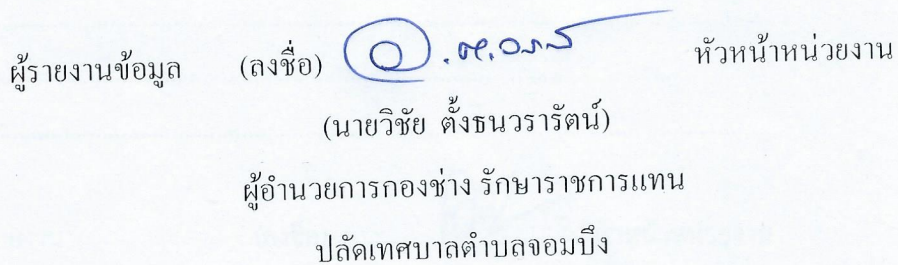 ผู้รายงานข้อมูล (ลงชื่อ) หัวหน้าหน่วยงาน
(นายวิชัย ตั้งธนวรารัตน์)
ผู้อำนวยการกองช่าง รักษาราชการแทน
ปลัดเทศบาลตำบลจอมบึง